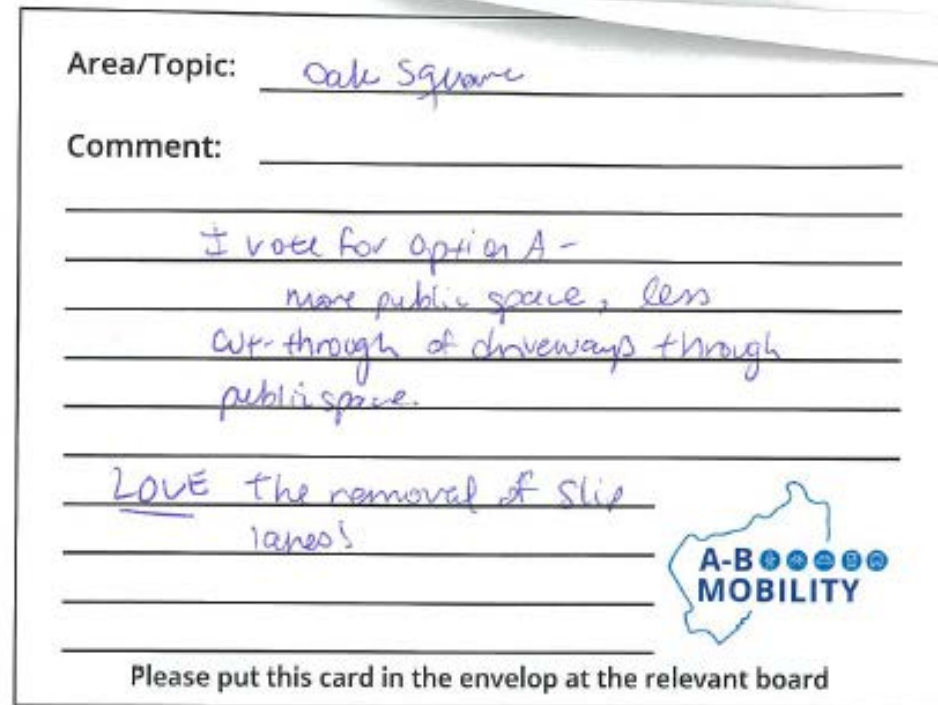 Area/Topic: Oak Square
Comment:
I vote for option A -
more public space, less
cut-through of driveways through
public space.
LOVE the removal of slip
lanes!
A-B
MOBILITY
Please put this card in the envelop at the relevant board